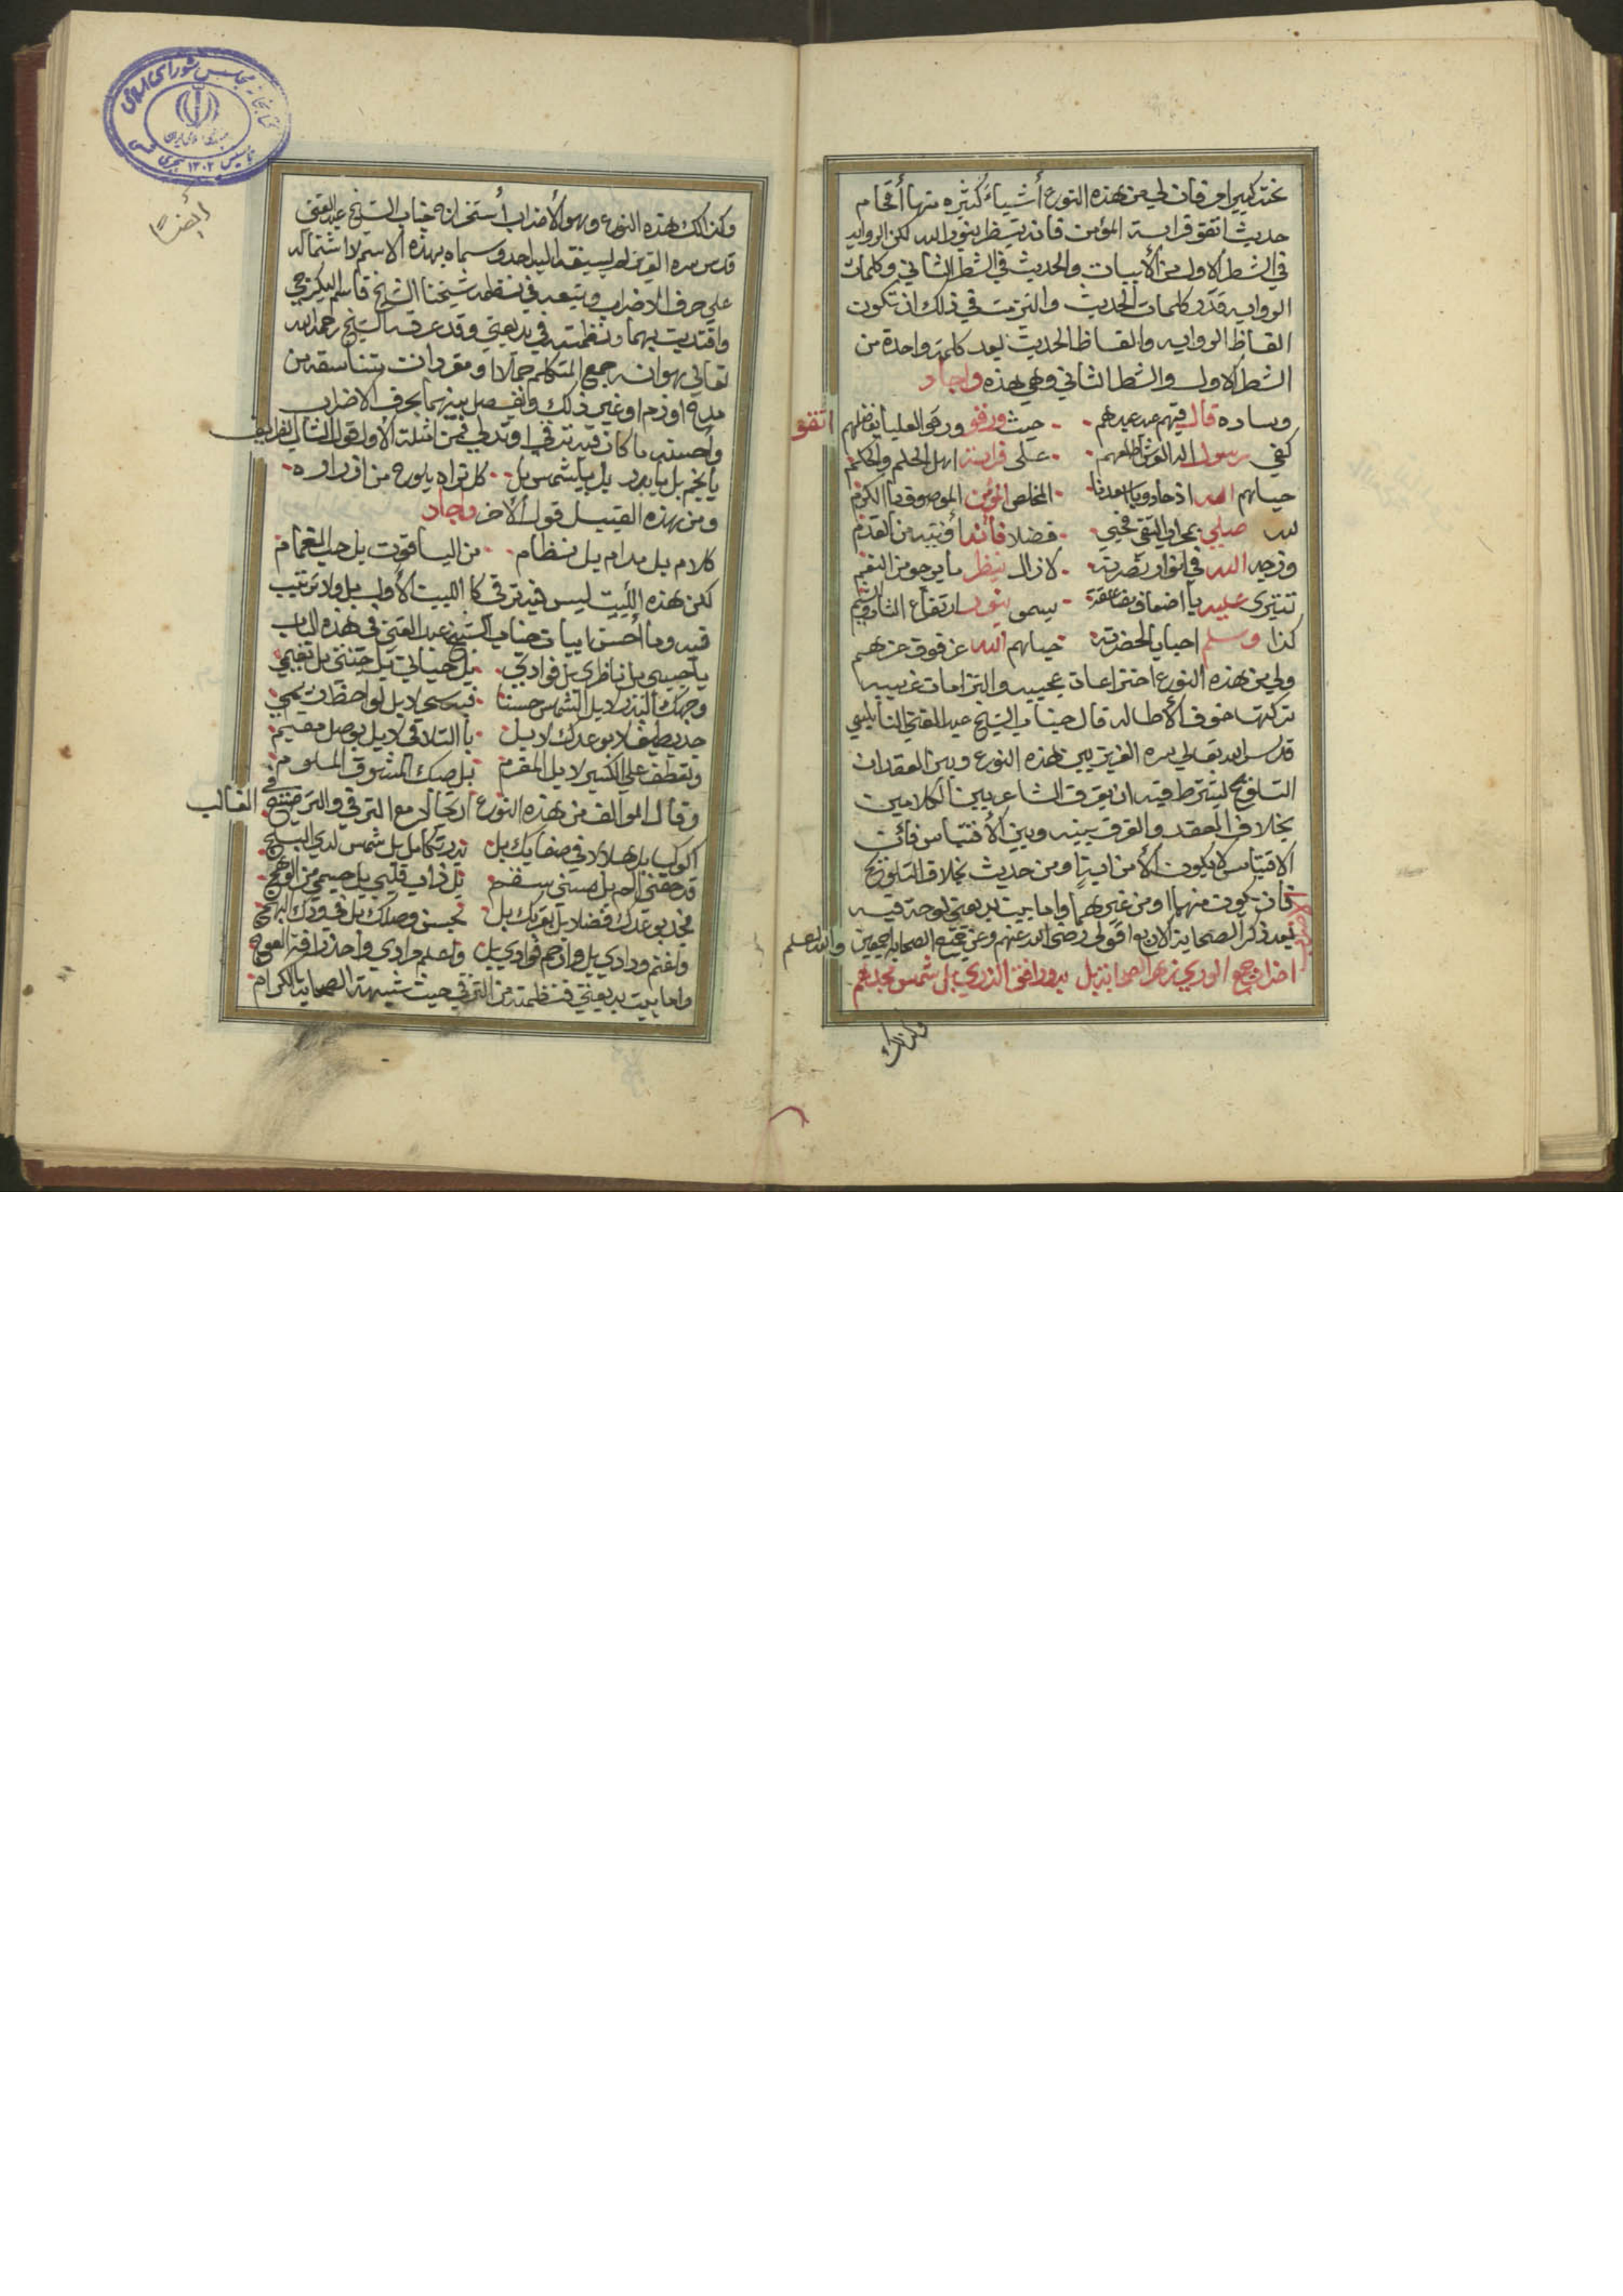 تختكبيرا فان لي من هذه النوع أشياء كثيره منها أقحام
حديث اتقو فراسة المؤمن فانه ينظر بنور الله لكن الروايه
في الشطر الاول من الأبيات والحديث في الشطر الثاني وكلمات
الروايه قدر كلمات الحديث والتزمت في ذلك ان تكون
الفاظ الروايه والفاظ الحديث بعد كلمة واحدة من
الشطر الاول والشطر الثاني وهي هذه واجاد
وساده قال فيهم عبد عبدهم حيث ورقو ورقو العليا بفضلهم اتقو
كفي رسول الله على فراسة اهل الحلم والحكم
حباهم الله اذ جادو المخلص المؤمن الموصوف بالكرم
لله صلي فضلا فأنه من القدم
وزجيه الله في انوار نصرته لا زال ينظر ما يرجو من النعم
تتري عليه يا اضعاف مضاعفة يسمو بنور ارتفاع
كذا وسلم احبابا لحضرته حباهم الله عز فوق عزهم
ولي من هذه النوع اختراعات عجيبه والتزامات غريبه
تركتها خوف الأطاله قال جناب الشيخ عبد الغني النابلسي
قدس الله تعالي سره العزيز بين هذه النوع وبين العقد ان
التلويح ليشترط فيه ان يفرق الشاعر بين الكلامين
بخلاف العقد والفرق بينه وبين الأقتباس فأن
الاقتباس لا يكون الأ من اية ومن حديث بخلاف التلويح
فان يكون منهما او من غيرهما واما بيت بديعتي لوحة فيه
بعد ذكر الصحابة الان بوا قولي رضي الله عنهم وعن جميع الصحابه اجمعين والله اعلم
اضراب جمع الوري زهر الصحابة بل بدور افق الذري بل شمس مجدهم
وكذالك
وكذالك هذه النوع وهو الأضراب أستخرجه جناب الشيخ عبد الغني
قدس سره العزيز لم يسبقه اليه احد وسماه بهذه الاسم لاشتماله
علي حرف الاضراب وتبعه في نظمه شيخنا الشيخ قاسم البكرجي
واقتديت بهما ونظمته في بديعتي وقد عرفه الشيخ رحمه الله
تعالي بهو انه جمع المتكلم جملا او مفردات متناسقة من
مدح او ذم او غير ذلك ويفصل بينهما بحرف الاضراب
واحسنه ما كان فيه ترقي او تدلي فمن امثلة الاول قول الشاب الظريف
يا نجم بل يا بدر بل يا شمس بل كل تراه يلوح من ازراره
ومن هذه القبيل قول ألأخر واجاد
كلام بل مدام بل نظام من الياقوت بل حب الغمام
لكن هذه البيت ليس فيه ترقي كا البيت الأول بل ولا ترتيب
فيه وما أحسن ابيات جناب الشيخ عبد الغني في هذه الباب
يا حبيبي بل ناظري بل فوادي بل حياتي بل جنتي بل نعيمي
وجهك البدر لا بل الشمس حسنا فيه سحر لا بل لواحظ ريم
جد بطيف لا بوعدك لا بل با التلاقي لا بل بوصل مقيم
وتعطف علي الكئيب لا بل المغرم بل صبك المشوق الملوم
وقال المؤالف من هذه النوع ارتجالا مع الترقي والترجيح في الغالب
اكوكب بل هلال في صفايك بل بدر تكامل بل شمس لدي البلج
قد حفني الم بل مسني سقم بل ذاب قلبي بل جسمي من الوهج
فجد بوعدك فضلا بل بقربك بل بحسن وصلك بل في ودك البهج
واغنم ودادي بل وارحم فوادي بل واعلم مرادي واحذر افة العوج
واما بيت بديعتي فنظمته من الترقي حيث شبهة الصحابة الكرام
ايضًا
كتابخانه مجلس شورای اسلامی
تأسیس ۱۳۰۲ هجری شمسی